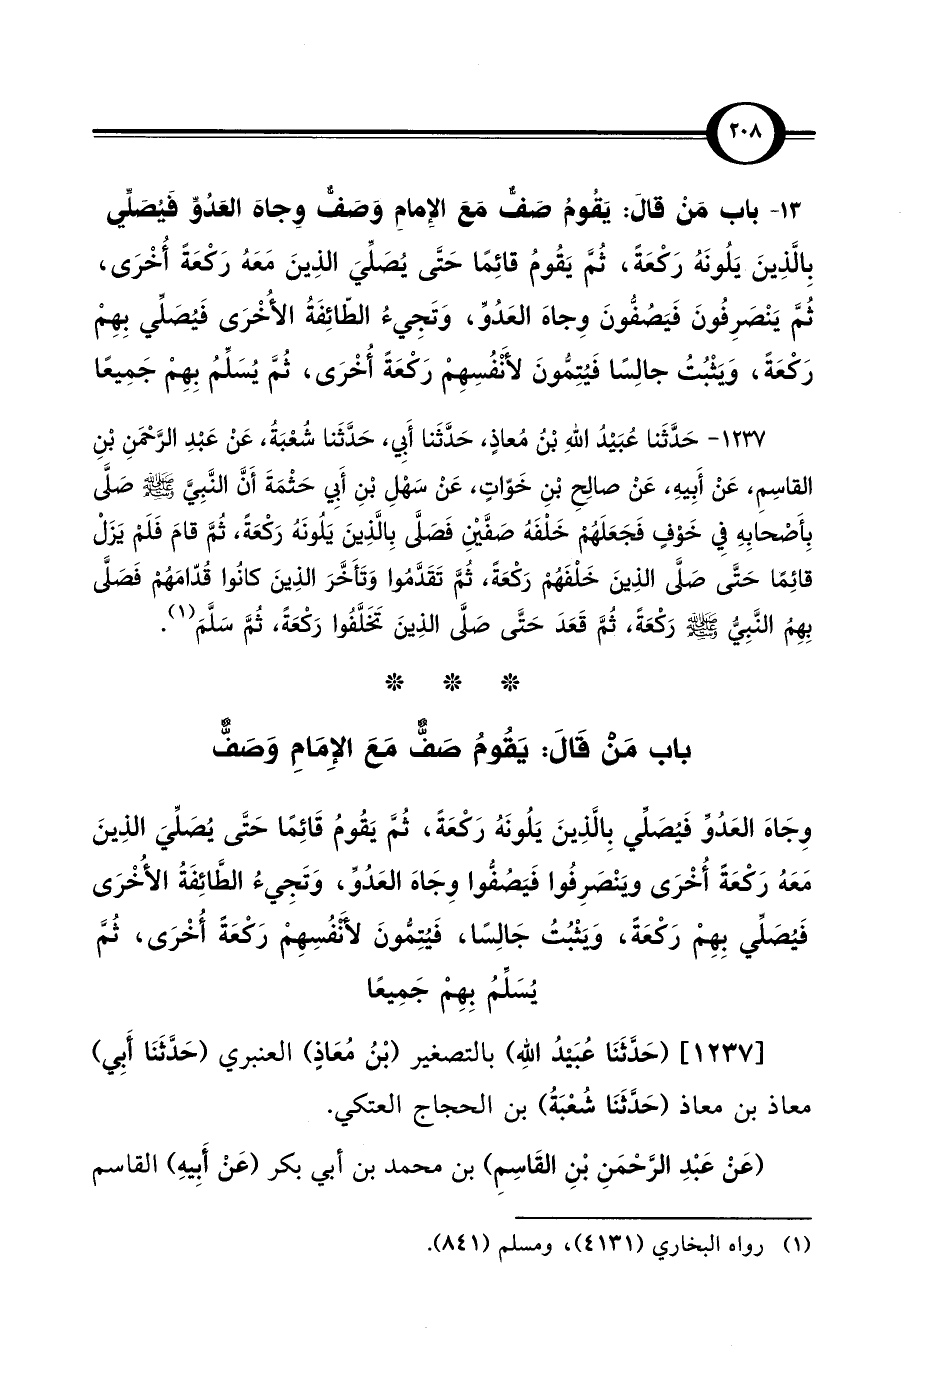 ٢٠٨
١٣- باب مَنْ قالَ: يَقُومُ صَفٌّ مَعَ الإِمامِ وَصَفٌّ وِجاهَ العَدُوِّ فَيُصَلِّي
بِالَّذِينَ يَلُونَهُ رَكْعَةً، ثُمَّ يَقُومُ قائِمًا حَتَّى يُصَلِّيَ الذِينَ مَعَهُ رَكْعَةً أُخْرَى،
ثُمَّ يَنْصَرِفُونَ فَيَصُفُّونَ وِجاهَ العَدُوِّ، وَتَجِيءُ الطّائِفَةُ الأُخْرَى فَيُصَلِّي بِهِمْ
رَكْعَةً، وَيَثْبُتُ جالِسًا فَيُتِمُّونَ لأَنْفُسِهِمْ رَكْعَةً أُخْرَى، ثُمَّ يُسَلِّمُ بِهِمْ جَمِيعًا
١٢٣٧- حَدَّثَنا عُبَيْدُ اللهِ بْنُ مُعاذٍ، حَدَّثَنا أَبي، حَدَّثَنا شُعْبَةُ، عَنْ عَبْدِ الرَّحْمَنِ بْنِ
القاسِمِ، عَنْ أَبِيهِ، عَنْ صالِحِ بْنِ خَوّاتٍ، عَنْ سَهْلِ بْنِ أَبي حَثْمَةَ أَنَّ النَّبِيَّ ﷺ صَلَّى
بِأَصْحابِهِ في خَوْفٍ فَجَعَلَهُمْ خَلْفَهُ صَفَّيْنِ فَصَلَّى بِالَّذِينَ يَلُونَهُ رَكْعَةً، ثُمَّ قامَ فَلَمْ يَزَلْ
قائِمًا حَتَّى صَلَّى الذِينَ خَلْفَهُمْ رَكْعَةً، ثُمَّ تَقَدَّمُوا وَتَأَخَّرَ الذِينَ كانُوا قُدّامَهُمْ فَصَلَّى
بِهِمُ النَّبِيُّ ﷺ رَكْعَةً، ثُمَّ قَعَدَ حَتَّى صَلَّى الذِينَ تَخَلَّفُوا رَكْعَةً، ثُمَّ سَلَّمَ(١).
* * *
باب مَنْ قَالَ: يَقُومُ صَفٌّ مَعَ الإِمَامِ وَصَفٌّ
وِجَاهَ العَدُوِّ فَيُصَلِّي بِالَّذِينَ يَلُونَهُ رَكْعَةً، ثُمَّ يَقُومُ قَائِمًا حَتَّى يُصَلِّيَ الذِينَ
مَعَهُ رَكْعَةً أُخْرَى وينْصَرِفُوا فَيَصُفُّوا وِجَاهَ العَدُوِّ، وَتَجِيءُ الطَّائِفَةُ الأُخْرَى
فَيُصَلِّي بِهِمْ رَكْعَةً، وَيَثْبُتُ جَالِسًا، فَيُتِمُّونَ لأَنْفُسِهِمْ رَكْعَةً أُخْرَى، ثُمَّ
يُسَلِّمُ بِهِمْ جَمِيعًا
[١٢٣٧] (حَدَّثَنَا عُبَيْدُ اللهِ) بالتصغير (بْنُ مُعَاذٍ) العنبري (حَدَّثَنَا أَبِي)
معاذ بن معاذ (حَدَّثَنَا شُعْبَةُ) بن الحجاج العتكي.
(عَنْ عَبْدِ الرَّحْمَنِ بْنِ القَاسِمِ) بن محمد بن أبي بكر (عَنْ أَبِيهِ) القاسم
(١) رواه البخاري (٤١٣١)، ومسلم (٨٤١).